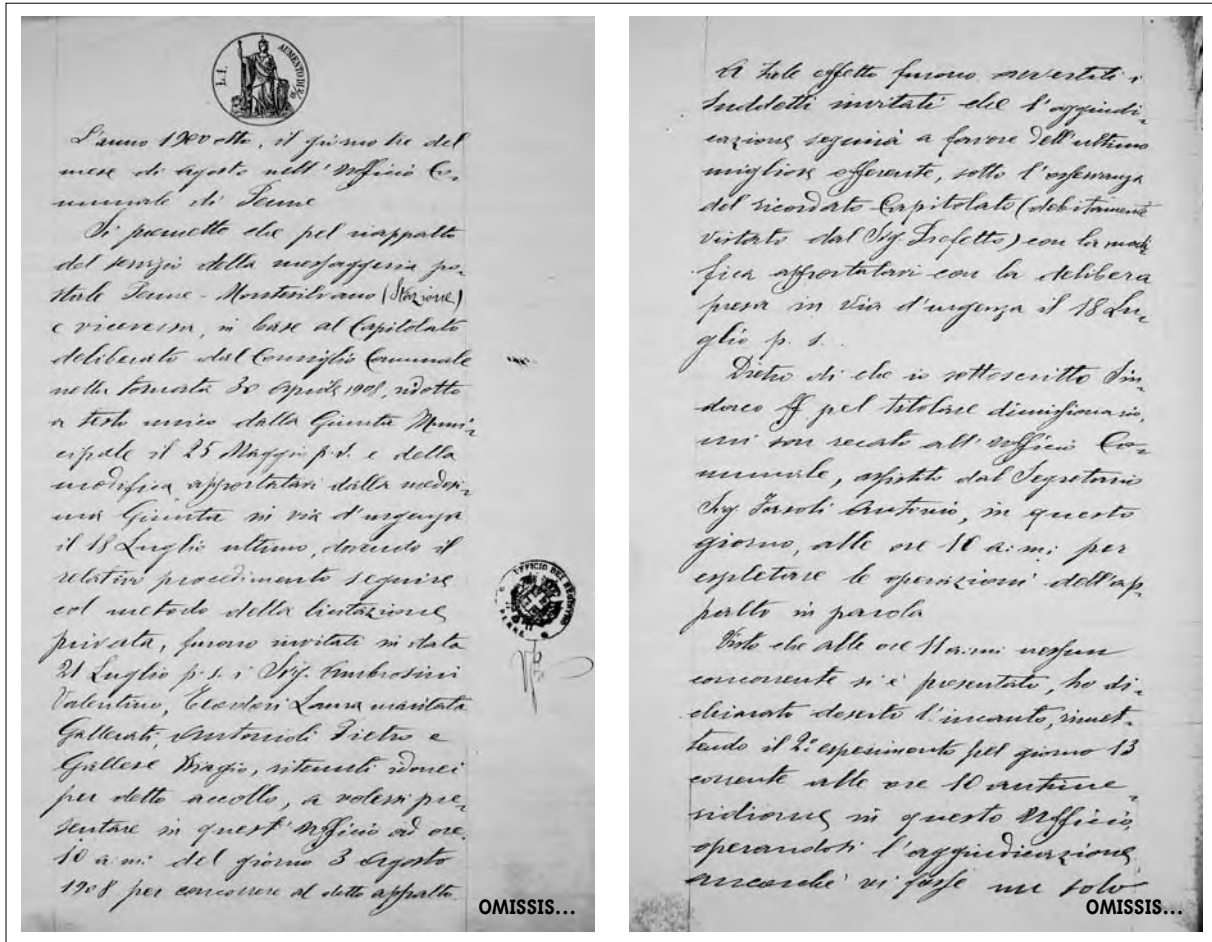 L.1. AUMENTO DI 2/10
L'anno 1900 otto, il giorno tre del
mese di Agosto nell'Ufficio Co-
munale di Penne
Si premette che pel riappalto
del servizio della messaggeria po-
stale Penne - Montesilvano (Stazione)
e viceversa, in base al Capitolato
deliberato dal Consiglio Comunale
nella tornata 30 Aprile 1908, ridotto
a testo unico dalla Giunta Muni-
cipale il 25 Maggio p.s. e della
modifica apportatavi dalla medesi-
ma Giunta in via d'urgenza
il 18 Luglio ultimo, dovendo il
relativo procedimento seguire
col metodo della licitazione
privata, furono invitati in data
21 Luglio p.s. i Sigg. Ambrosini
Valentino, Teodori Laura maritata
Gallerati, Antonioli Pietro e
Gallese Biagio, ritenuti idonei
per detto accollo, a volersi pre-
sentare in quest'Ufficio ad ore
10 a:m: del giorno 3 Agosto
1908 per concorrere al detto appalto.
OMISSIS...
UFFICIO DEL REGISTRO
PENNE
A tale effetto furono avvertiti i
suddetti invitati che l'aggiudi-
cazione seguirà a favore dell'ultimo
migliore offerente, sotto l'osservanza
del ricordato Capitolato (debitamente
vistato dal Sig. Prefetto) con la modi-
fica apportatavi con la delibera
presa in via d'urgenza il 18 Lu-
glio p. s..
Dietro di che io sottoscritto Sin-
daco ff pel titolare dimissionario,
mi son recato all'Ufficio Co-
munale, assistito dal Segretario
Sig. Antonio, in questo
giorno, alle ore 10 a:m: per
espletare le operazioni dell'ap-
palto in parola
Visto che alle ore 11 a:m: nessun
concorrente si è presentato, ho di-
chiarato deserto l'incanto, rimet-
tendo il 2° esperimento pel giorno 13
corrente alle ore 10 antime-
ridiane in questo Ufficio,
operandosi l'aggiudicazione
ancorchè vi fosse un solo
OMISSIS...